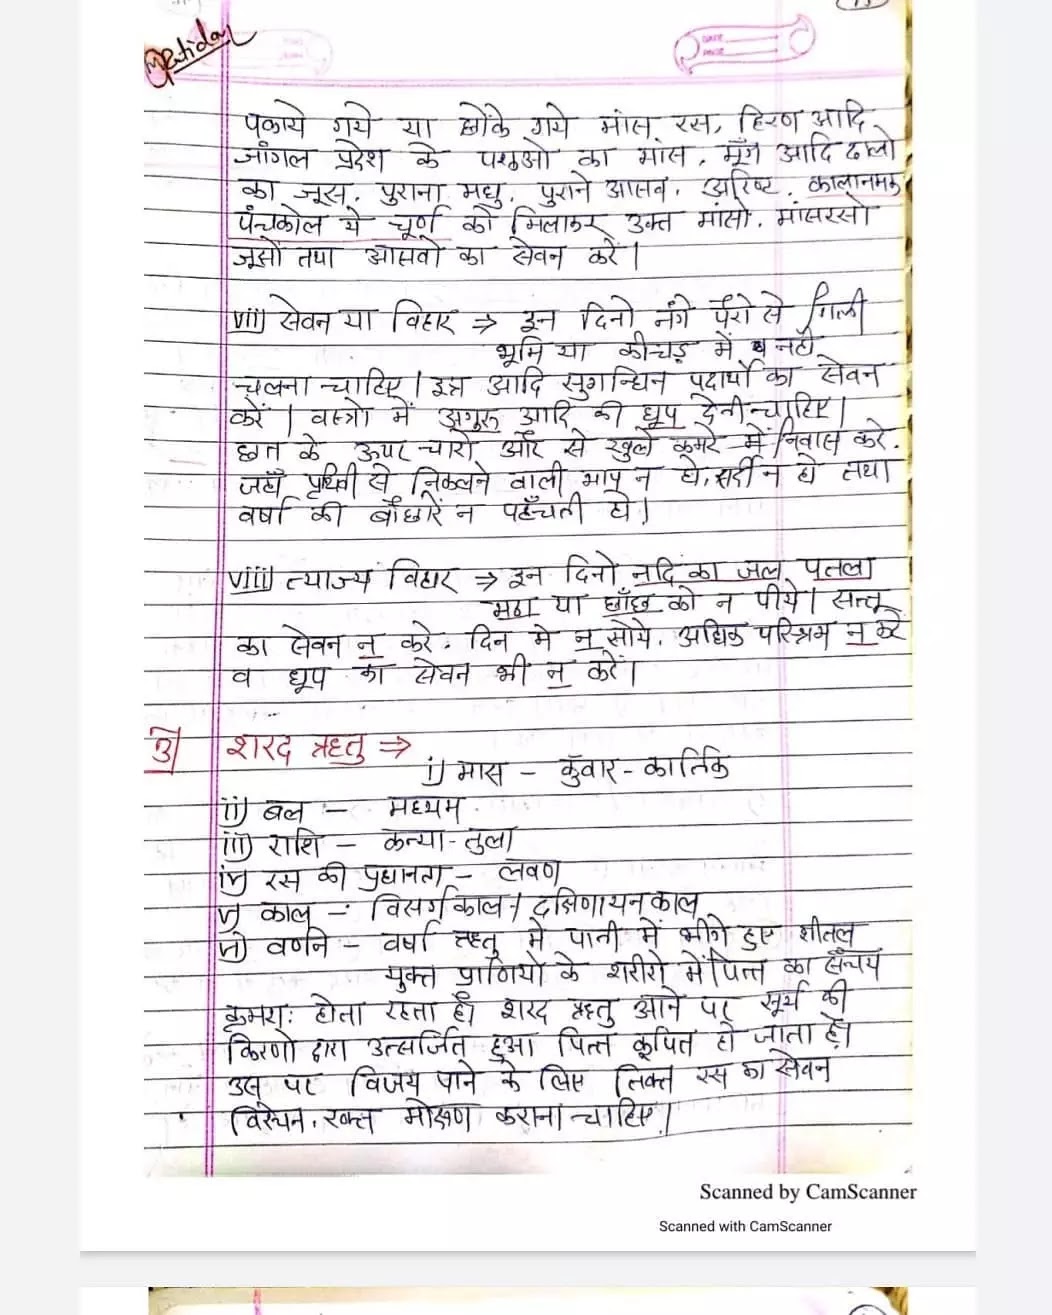 पकाये गये या छोंके गये मांस रस, हिरण आदि
जांगल प्रदेश के पशुओ का मांस, मूँग आदि दालो
का जूस, पुराना मधु, पुराने आसव, अरिष्ट, कालानमक
पंचकोल ये चूर्ण को मिलाकर उक्त मांसो, मांसरसो
जूसों तथा आसवो का सेवन करें।
vii) सेवन या विहार ⇒ इन दिनो नंगे पैरो से गिली
भूमि या कीचड़ में नही
चलना चाहिए। इत्र आदि सुगन्धित पदार्थो का सेवन
करें। वस्त्रो में अगुरू आदि की धूप देनी चाहिए।
छत के ऊपर चारो और से खुले कमरे में निवास करे.
जहाँ पृथिवी से निकलने वाली भाप न हो, सर्दी न हो तथा
वर्षा की बौछारें न पहुँचती हो।
viii) त्याज्य विहार ⇒ इन दिनो नदि का जल पतला
मठा या छाँछ को न पीये। सत्तू
का सेवन न करे, दिन मे न सोये, अधिक परिश्रम न करे
व धूप का सेवन भी न करें।
3) शरद ऋतु ⇒
i) मास – कुँवार - कार्तिक
ii) बल :– मध्यम
iii) राशि – कन्या - तुला
iv) रस की प्रधानता – लवण
v) काल – विसर्गकाल / दक्षिणायन काल
vi) वर्णन – वर्षा ऋतु मे पानी में भीगे हुए शीतल
युक्त प्राणियो के शरीरो में पित्त का संचय
क्रमश: होता रहता है। शरद ऋतु आने पर सूर्य की
किरणो द्वारा उत्सर्जित हुआ पित्त कूपित हो जाता है।
उस पर विजय पाने के लिए तिक्त रस का सेवन
विरेचन, रक्त मोक्षण कराना चाहिए।
Scanned by CamScanner
Scanned with CamScanner